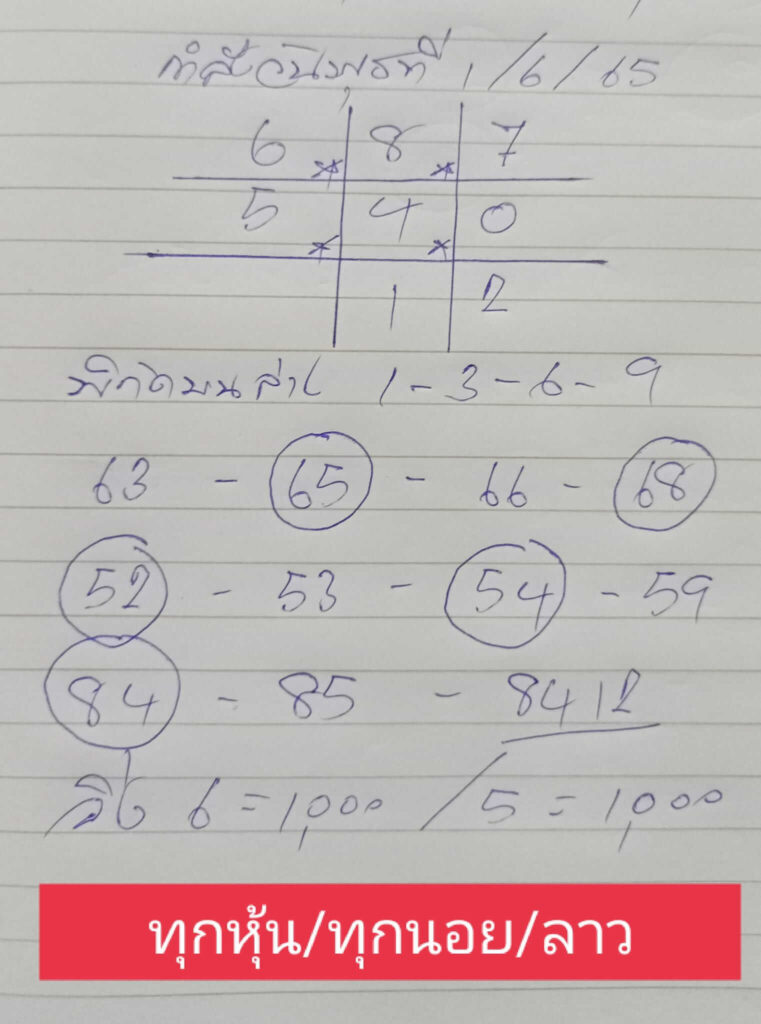 วันพุธที่ 1/6/65
6 8 7
5 4 0
1 2
พิกัดบนล่าง 1-3-6-9
63 - 65 - 66 - 68
52 - 53 - 54 - 59
84 - 85 - 8412
วิ่ง 6 = 1,000 / 5 = 1,000
ทุกหุ้น/ทุกนอย/ลาว